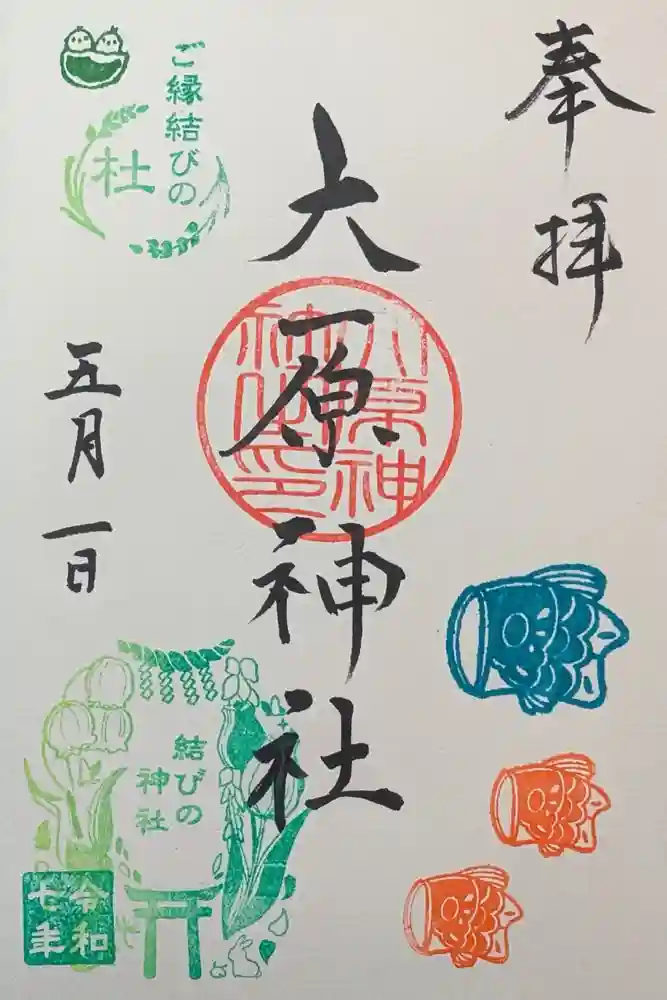 奉拝
大原神社
大原神社印
ご縁結びの
杜
五月一日
結びの
神社
令和
七年